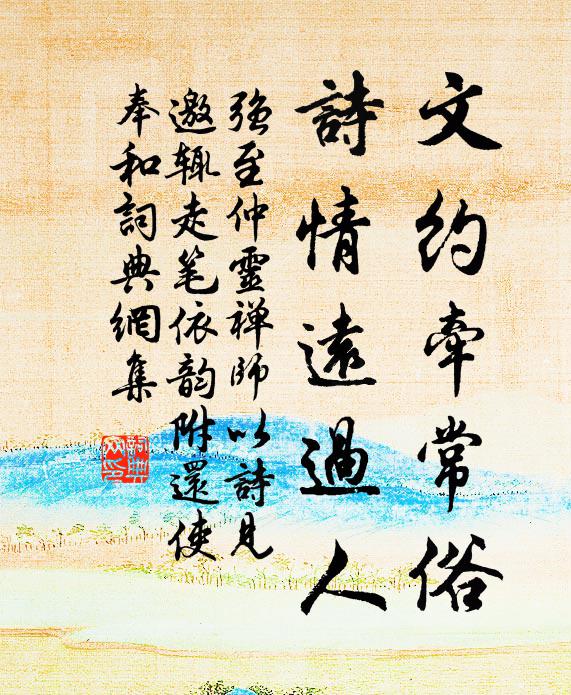 文約牽常俗
詩情遠過人
强至仲靈禅師以詩見
邀輒走笔依韵附還使
奉和詞典網集